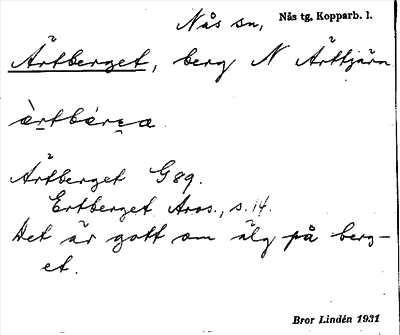 Nås sn, Nås tg, Kopparb. l.
Ärtberget, berg N Ärttjärn
Ärtberget G89.
Ertberget Aros., s. 14.
Det är gott om älg på berg-
et.
Bror Lindén 1931